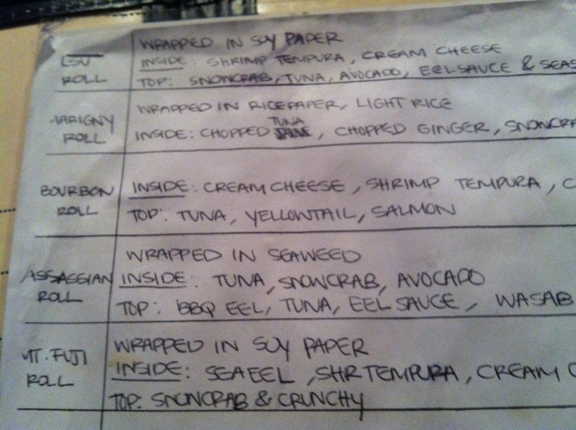 LSU ROLL
WRAPPED IN SOY PAPER
INSIDE: SHRIMP TEMPURA, CREAM CHEESE
TOP: SNOWCRAB, TUNA, AVOCADO, EEL SAUCE &
MARIGNY ROLL
WRAPPED IN RICEPAPER, LIGHT RICE
INSIDE: CHOPPED TUNA, CHOPPED GINGER,
BOURBON ROLL
INSIDE: CREAM CHEESE, SHRIMP TEMPURA, C
TOP: TUNA, YELLOWTAIL, SALMON
ASSASSIAN ROLL
WRAPPED IN SEAWEED
INSIDE: TUNA, SNOWCRAB, AVOCADO
TOP: BBQ EEL, TUNA, EEL SAUCE, WASAB
MT. FUJI ROLL
WRAPPED IN SOY PAPER
INSIDE: SEA EEL, SHR TEMPURA, CREAM C
TOP: SNOWCRAB & CRUNCHY